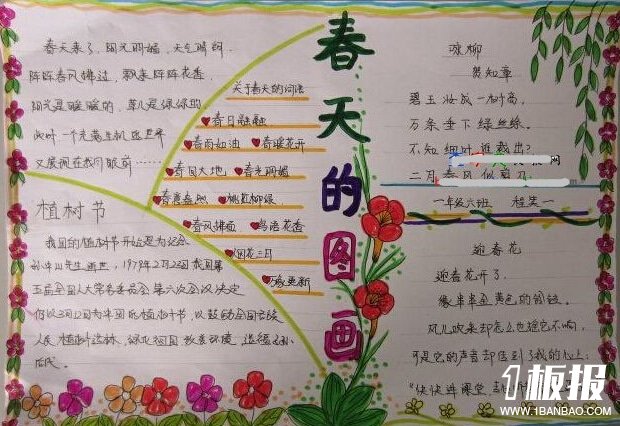 春天的图画
春天来了，阳光明媚，天气晴朗，
阵阵春风拂过，飘来阵阵花香，
阳光是暖暖的，草儿是绿绿的
此时一个充满生机的世界
又展现在我们眼前……
植树节
我国的植树节开始是为纪念
孙中山先生逝世，1979年2月23日我国第
五届全国人大常务委员会第六次会议决定
仍以3月12日为中国的植树节，以鼓动全国各族
人民植树造林，绿化祖国
关于春天的词语
春日融融
春雨如油 春暖花开
春回大地 春光明媚
春意盎然 桃红柳绿
春风拂面 鸟语花香
烟花三月
万象更新
咏柳
贺知章
碧玉妆成一树高，
万条垂下绿丝绦。
不知细叶谁裁出？
二月春风似剪刀。
一年级六班
迎春花
迎春花开了，
像串串金黄色的铃铛。
风儿吹来却怎么也摇它不响，
可是它的声音却传到了我的心上：
1板报
WWW.1BANBAO.COM